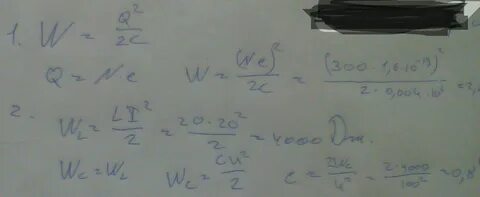 1. W = Q²/2C
Q = Ne W = (Ne)²/2C = (300 · 1,6·10⁻¹⁹)²/2 · 0,004 · 10⁶ = 2,
2. W_L = LI²/2 = 20·20²/2 = 4000 Дж.
W_C = W_L W_C = CU²/2 C = 2W_C/U² = 2·4000/100² = 0,8